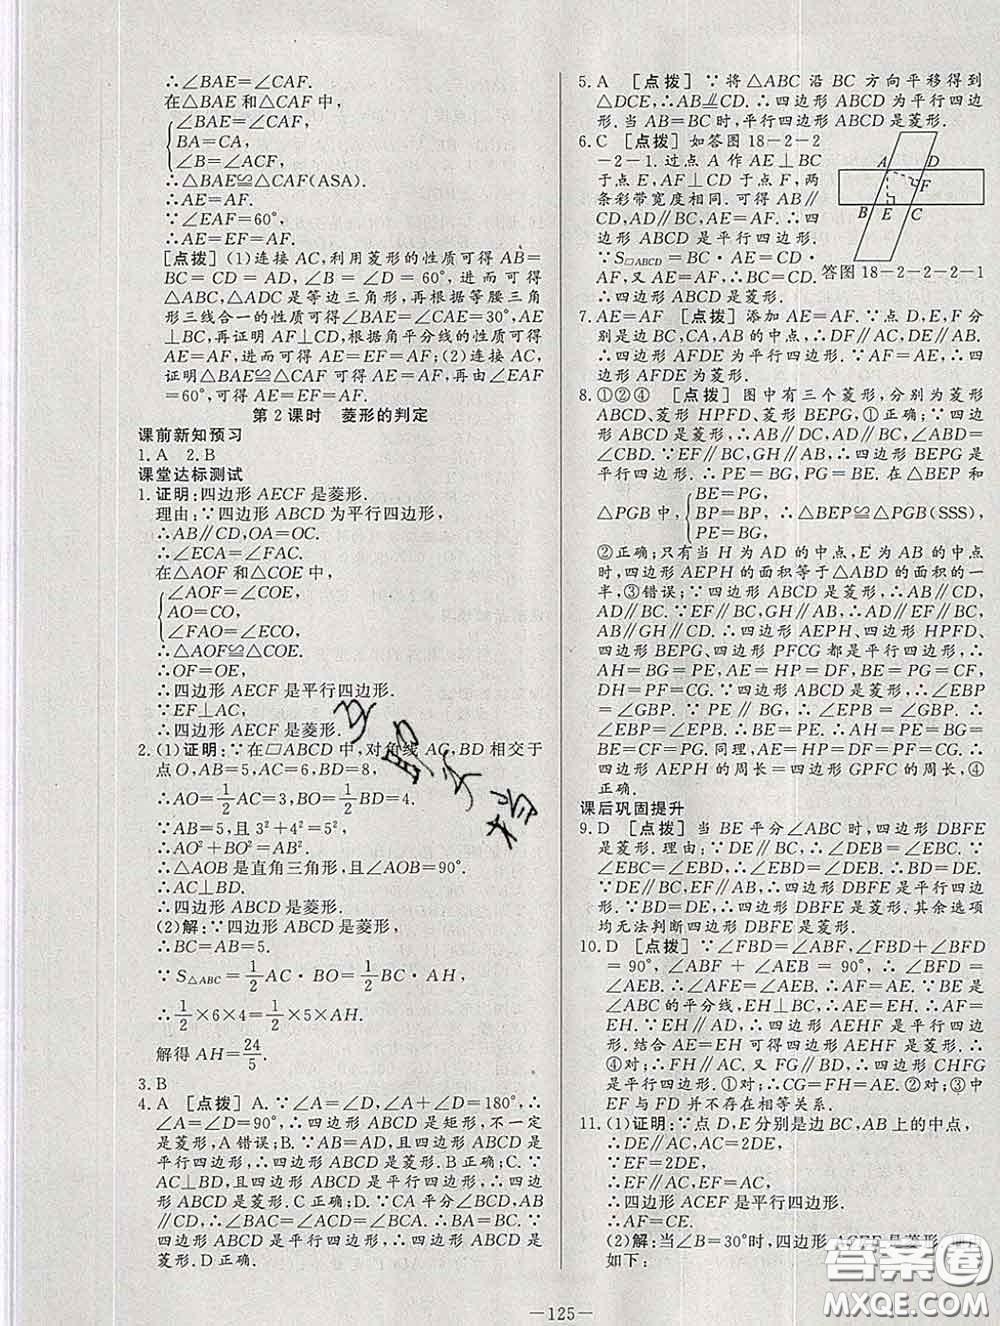 ∴∠BAE=∠CAF.
在△BAE和△CAF中,
∠BAE=∠CAF,
BA=CA,
∠B=∠ACF,
∴△BAE≌△CAF(ASA).
∴AE=AF.
∵∠EAF=60°,
∴AE=EF=AF.
[点拨] (1)连接AC,利用菱形的性质可得AB=
BC=CD=AD,∠B=∠D=60°,进而可得
△ABC,△ADC是等边三角形,再根据等腰三角
形三线合一的性质可得∠BAE=∠CAE=30°,AE
⊥BC,再证明AF⊥CD,根据角平分线的性质可得
AE=AF,进而可得AE=EF=AF;(2)连接AC,
证明△BAE≌△CAF可得AE=AF,再由∠EAF
=60°,可得AE=EF=AF.
第2课时 菱形的判定
课前新知预习
1.A 2.B
课堂达标测试
1.证明:四边形AECF是菱形.
理由:∵四边形ABCD为平行四边形,
∴AB∥CD,OA=OC.
∴∠ECA=∠FAC.
在△AOF和△COE中,
∠AOF=∠COE,
AO=CO,
∠FAO=∠ECO,
∴△AOF≌△COE.
∴OF=OE,
∴四边形AECF是平行四边形.
∵EF⊥AC,
∴四边形AECF是菱形.
2.(1)证明:∵在▱ABCD中,对角线AC,BD相交于
点O,AB=5,AC=6,BD=8,
∴AO=1/2AC=3,BO=1/2BD=4.
∵AB=5,且3²+4²=5²,
∴AO²+BO²=AB².
∴△AOB是直角三角形,且∠AOB=90°.
∴AC⊥BD.
∴四边形ABCD是菱形.
(2)解:∵四边形ABCD是菱形,
∴BC=AB=5.
∵S△ABC=1/2AC·BO=1/2BC·AH,
∴1/2×6×4=1/2×5×AH.
解得AH=24/5.
3.B
4.A [点拨] A.∵∠A=∠D,∠A+∠D=180°,∴
∠A=∠D=90°,∴四边形ABCD是矩形,不一定
是菱形,A错误;B.∵AB=AD,且四边形ABCD是
平行四边形,∴四边形ABCD是菱形.B正确;C.∵
AC⊥BD,且四边形ABCD是平行四边形,∴四边
形ABCD是菱形.C正确;D.∵CA平分∠BCD,AB
∥CD,∴∠BAC=∠ACD=∠BCA.∴AB=BC.∵
四边形ABCD是平行四边形,∴四边形ABCD是
菱形.D正确.
5.A [点拨] ∵将△ABC沿BC方向平移得到
△DCE,∴AB∥CD.∴四边形ABCD为平行四边
形.当AB=BC时,平行四边形ABCD是菱形.
6.C [点拨] 如答图18-2-2
-2-1.过点A作AE⊥BC
于点E,AF⊥CD于点F,两
条彩带宽度相同.可得AB∥
CD,AD∥BC,AE=AF.∴四
边形ABCD是平行四边形.
∵S▱ABCD=BC·AE=CD·
AF,又AE=AF,∴BC=CD.
∴四边形ABCD是菱形.
A D F B E C
答图18-2-2-2-1
7.AE=AF [点拨] 添加AE=AF.∵点D,E,F分
别是边BC,CA,AB的中点,∴DF∥AC,DE∥AB.
∴四边形AFDE为平行四边形.又AE=AF,∴四
边形AFDE为菱形.
8.①②④ [点拨] 图中有三个菱形,分别为菱形
ABCD、菱形HPFD、菱形BEPG,①正确;∵四边
形ABCD是菱形,∴AB∥DC,AD∥BC,∠ABD=
∠CBD.∵EF∥BC,GH∥AB,∴四边形BEPG是
平行四边形.∴PE=BG,PG=BE.在△BEP和
△PGB中,
BE=PG,
BP=BP,
PE=BG,
∴△BEP≌△PGB(SSS),
②正确;只有当H为AD的中点,E为AB的中点
时,四边形AEPH的面积等于△ABD的面积的一
半,③错误;∵四边形ABCD是菱形,∴AB∥CD,
AD∥BC.∵EF∥BC,GH∥CD,∴AD∥EF∥BC,
AB∥GH∥CD.∴四边形AEPH、四边形HPFD、
四边形BEPG、四边形PFCG都是平行四边形.∴
AH=BG=PE,AE=HP=DF,EB=PG=FC.
∵四边形ABCD是菱形,∴∠EBP
=∠GBP.∵PE∥BG,∴∠EPB=∠GBP.
∴∠EBP=∠EPB.∴BE=PE.∴AE+PE=AE
+BE=AB.∴AE+PE=AB.同理,AE+PE=BC.
∴四边形AEPH的周长=四边形GPFC的周长,④
正确.
课后巩固提升
9.D [点拨] 当BE平分∠ABC时,四边形DBFE
是菱形.理由:∵DE∥BC,∴∠DEB=∠EBC.∵
∠EBC=∠EBD,∴∠EBD=∠DEB.∴BD=DE.
∵DE∥BC,EF∥AB,∴四边形DBFE是平行四边
形.∵BD=DE,∴四边形DBFE是菱形.其余选项
均无法判断四边形DBFE是菱形.
10.D [点拨] ∵∠FBD=∠ABF,∠FBD+∠BFD
=90°,∠ABF+∠AEB=90°,∴∠BFD=
∠AEB.∴∠AFE=∠AEB.∴AF=AE.∵BE是
∠ABC的平分线,EH⊥BC,∴AE=EH.∴AF=
EH.∵EH∥AD,∴四边形AEHF是平行四边
形.结合AE=EH可得四边形AEHF是菱形.∴
④对;∵FH∥AC,又FG∥BD,∴四边形CHFG
是平行四边形.①对;∴CG=FH=AF.②对;③中
EF与FD并不存在相等关系.
11.(1)证明:∵点D,E分别是边BC,AB上的中点,
∴DE∥AC,AC=2DE,
∵EF=2DE,
∴EF∥AC,EF=AC,
∴四边形ACEF是平行四边形,
∴AF=CE.
(2)解:当∠B=30°时,四边形ACEF是菱形,理由
如下:
—125—
互助文档
答案圈
MXQE.COM